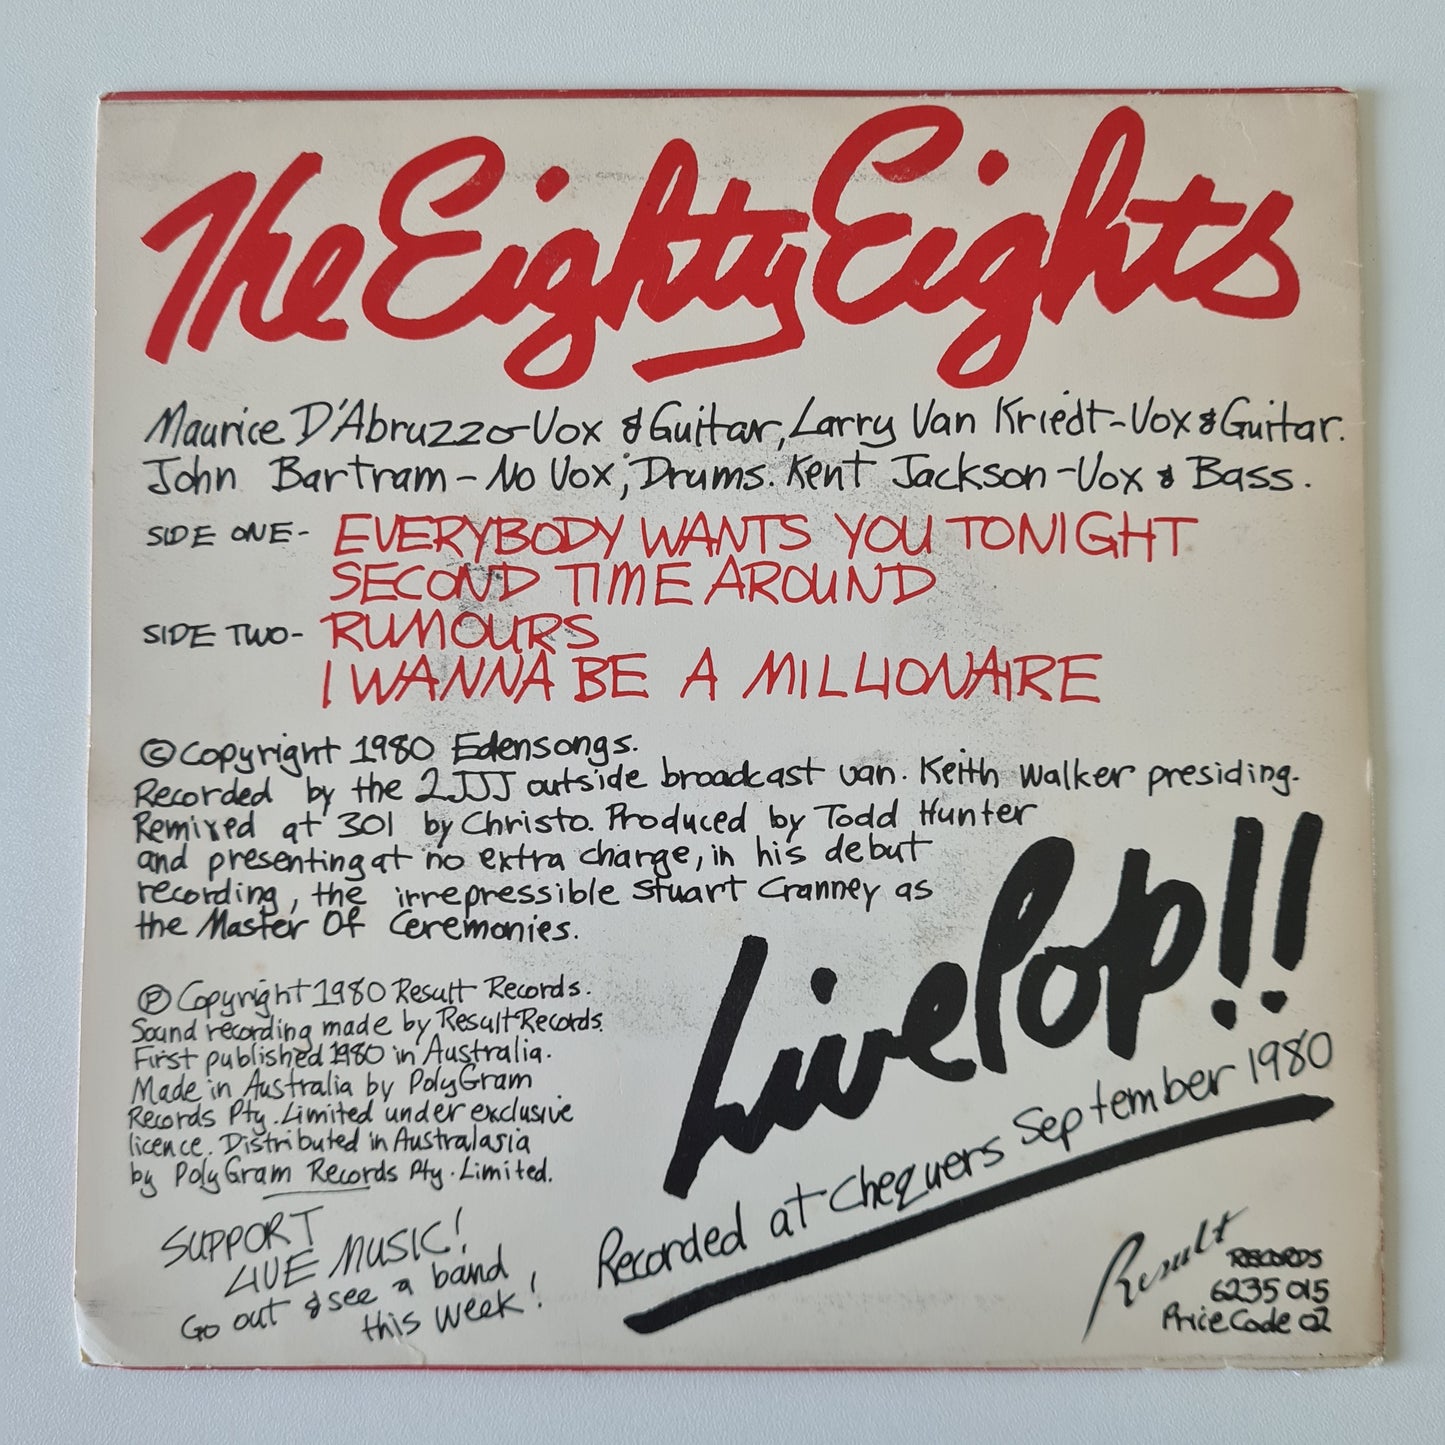 The Eighty Eights
Maurice D'Abruzzo-Vox & Guitar, Larry Van Kriedt-Vox & Guitar.
John Bartram - No Vox, Drums. Kent Jackson - Vox & Bass.
SIDE ONE- EVERYBODY WANTS YOU TONIGHT
SECOND TIME AROUND
SIDE TWO- RUMOURS
I WANNA BE A MILLIONAIRE
© Copyright 1980 Edensongs.
Recorded by the 2JJJ outside broadcast van. Keith Walker presiding.
Remixed at 301 by Christo. Produced by Todd Hunter
and presenting at no extra charge, in his debut
recording, the irrepressible Stuart Cranney as
the Master Of Ceremonies.
Live Pop!!
Recorded at Chequers September 1980
℗ Copyright 1980 Result Records.
Sound recording made by Result Records.
First published 1980 in Australia.
Made in Australia by PolyGram
Records Pty. Limited under exclusive
licence. Distributed in Australasia
by PolyGram Records Pty. Limited.
SUPPORT
LIVE MUSIC!
Go out & see a band
this week!
Result
RECORDS
6235 015
Price Code 02